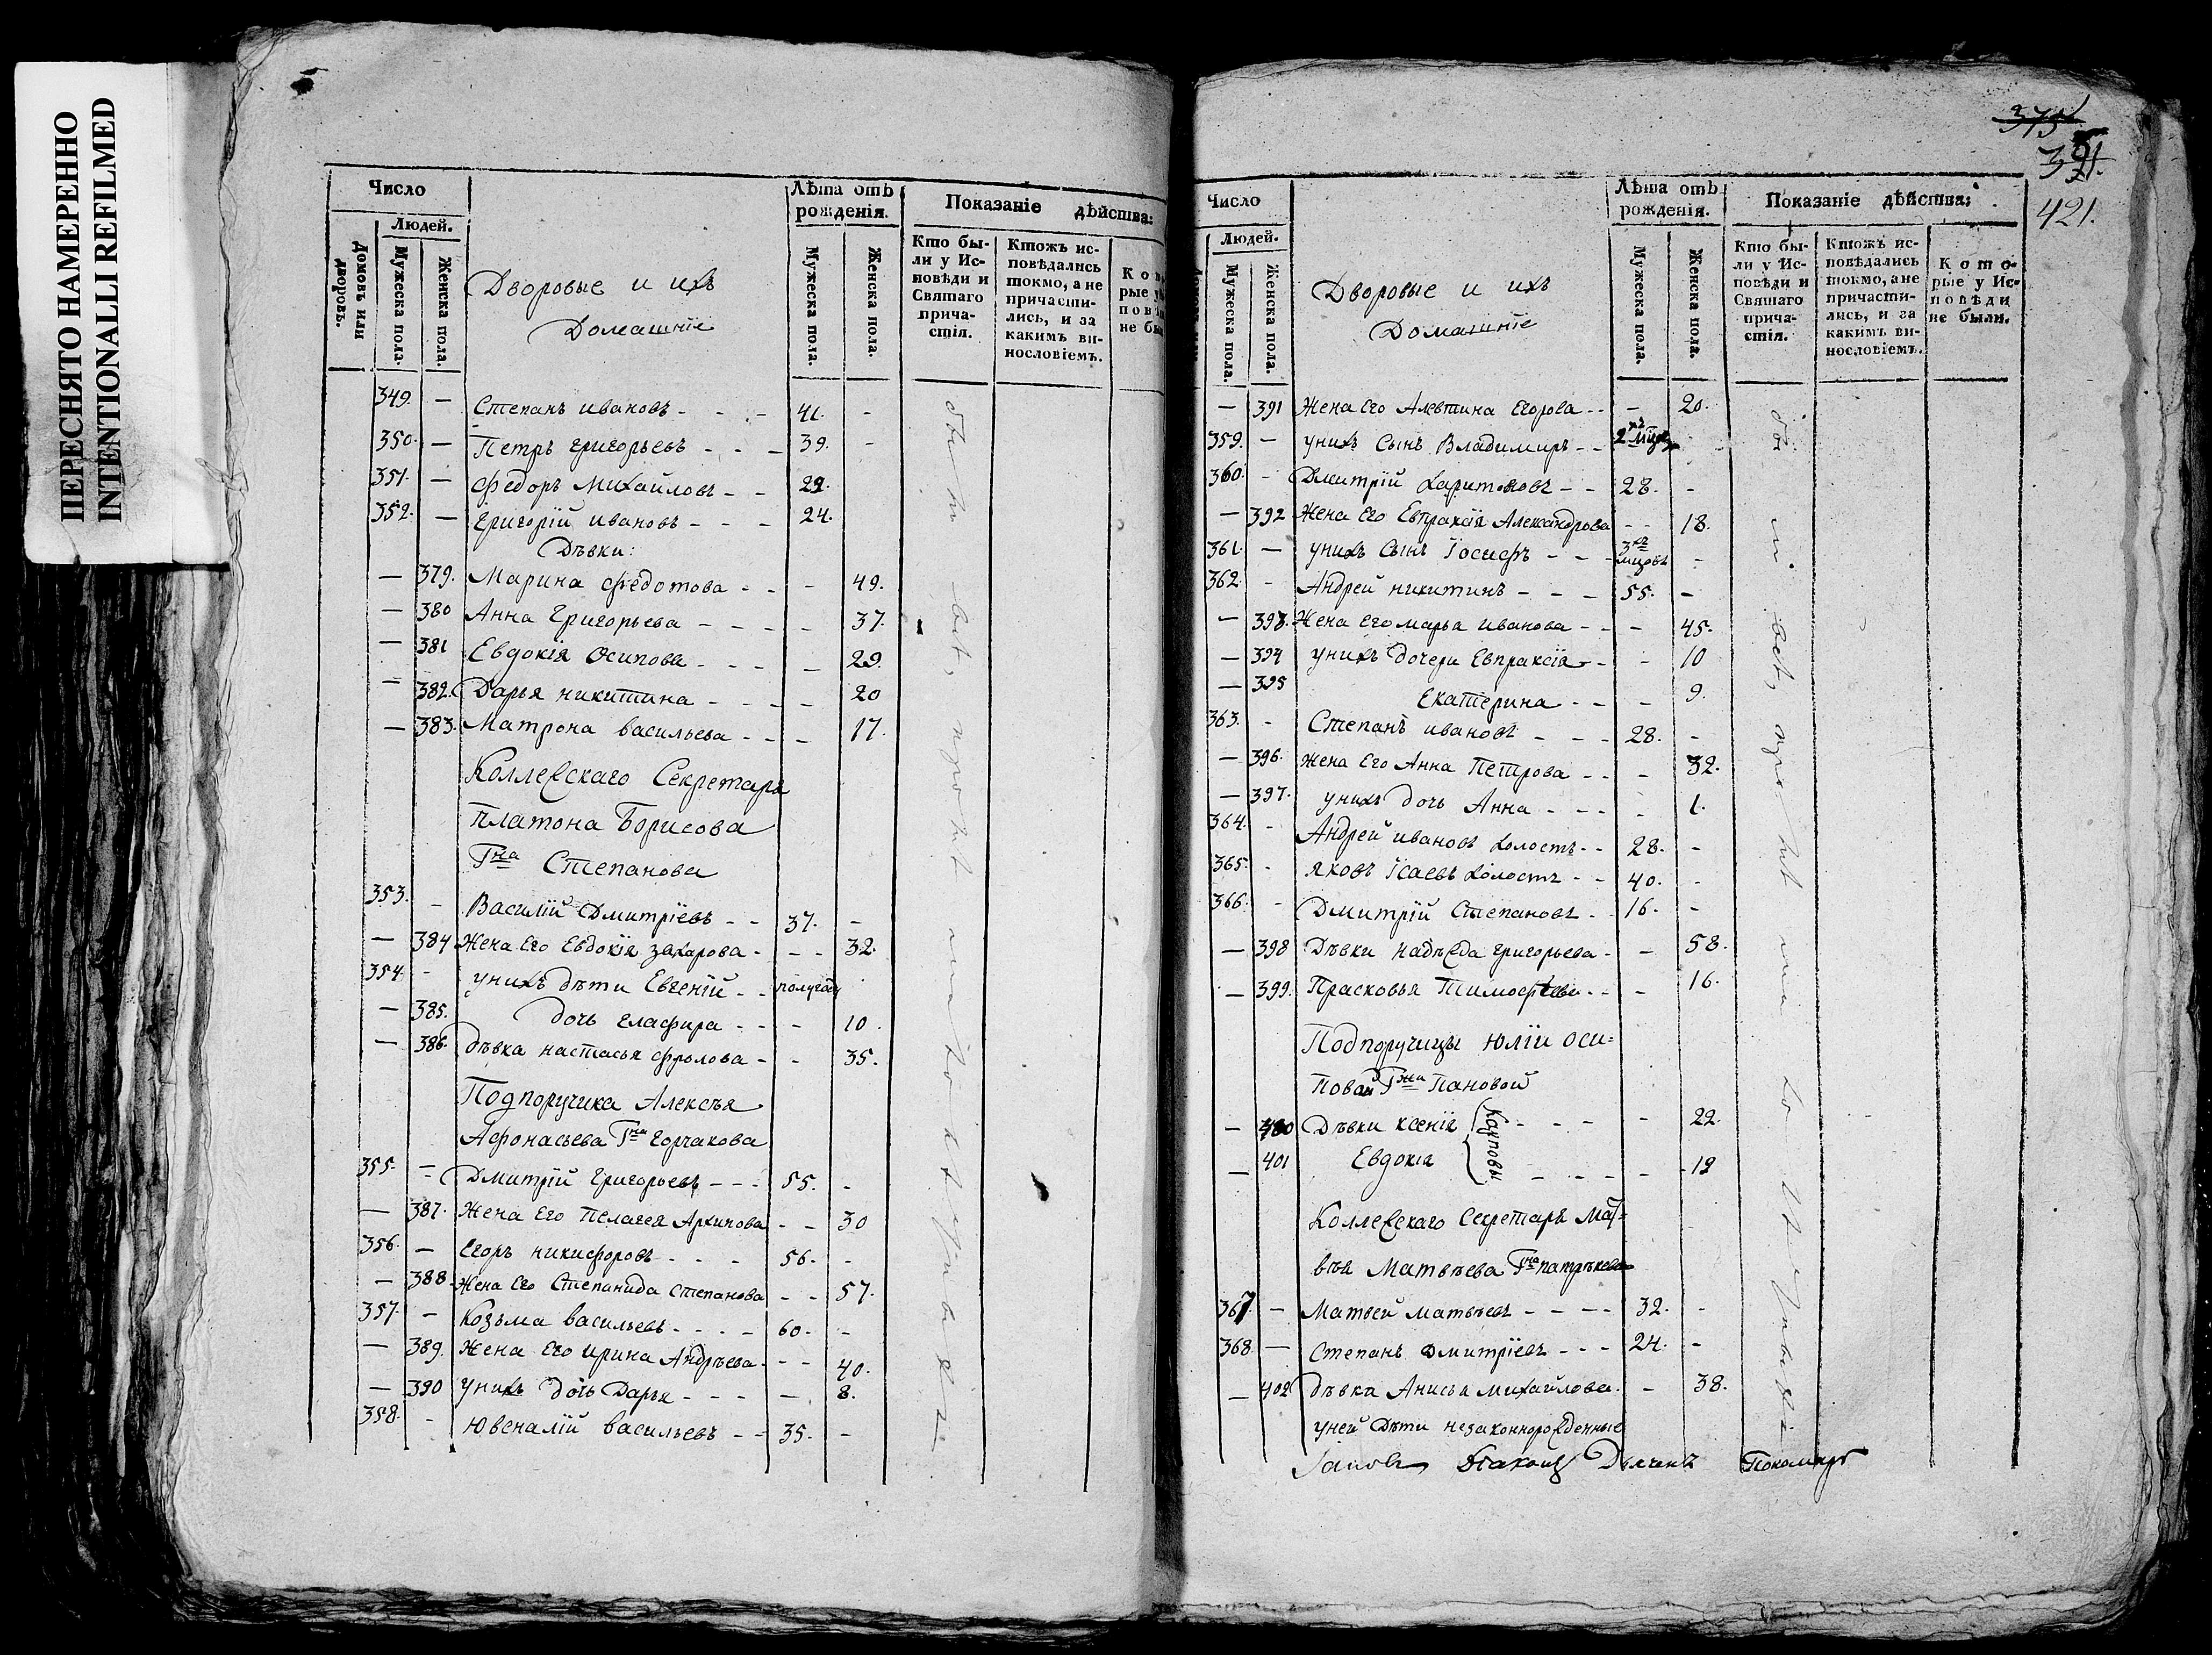 ПЕРЕСНЯТО НАМЕРЕННО
INTENTIONALLI REFILMED
Число
Людей.
Домовъ или дворовъ.
Мужеска пола.
Женска пола.
Дворовые и ихъ
Домашніе
Лѣта отъ рожденія.
Мужеска пола.
Женска пола.
Показаніе дѣйства:
Кто бы-
ли у Ис-
повѣди и
Святаго
прича-
стія.
Ктожъ ис-
повѣдались
токмо, а не
причасти-
лись, и за
какимъ ви-
нословіемъ.
349. — Степанъ Ивановъ - - - 41. -
350. — Петръ Григорьевъ - - - 39. -
351. — Федоръ Михайловъ - - 22.
352. — Григорій Ивановъ - - - 24.
Дѣвки:
— 379. Марина Федотова - - - 49.
— 380 Анна Григорьева - - - - 37.
— 381 Евдокія Осипова - - - - 29.
— 382. Дарья Никитина - - - - 20
— 383. Матрона Васильева - - - 17.
Коллежскаго Секретаря
Платона Борисова
Гна Степанова
353. - Василій Дмитріевъ - - 37. -
— 384 Жена Его Евдокія Захарова - - - 32.
354. - у нихъ дѣти Евгеній - - полугода
— 385. дочь Глафира - - - 10.
— 386. дѣвка Настасья Фролова - - 35.
Подпоручика Алексѣя
Афонасьева Гна Горчакова
355. — Дмитрій Григорьевъ - - - 55. -
— 387. Жена Его Пелагея Архипова - - 30
356. — Егоръ Никифоровъ - - - 56. -
— 388. Жена Его Степанида Степанова - - 57.
357. - Козьма Васильевъ - - - - 60. -
— 389. Жена Его Ирина Андрѣева - - - 40.
— 390 у нихъ дочь Дарья - - - — 8.
358. - Ювеналій Васильевъ - - 35. -
375
421.
Число
Людей.
Мужеска пола.
Женска пола.
Дворовые и ихъ
Домашніе
Лѣта отъ рожденія.
Мужеска пола.
Женска пола.
Показаніе дѣйства:
Кто бы-
ли у Ис-
повѣди и
Святаго
прича-
стія.
Ктожъ ис-
повѣдались
токмо, а не
причасти-
лись, и за
какимъ ви-
нословіемъ.
Кото-
рые у Ис-
повѣди
не были.
— 391 Жена Его Алевтина Егорова - - - 20.
359. - у нихъ сынъ Владимиръ - - 2хъ мцъ
360. - Дмитрій Харитоновъ - - 28. -
— 392 Жена Его Евпраксія Александрова - - 18.
361. — у нихъ сынъ Іосифъ - - - 3хъ мцовъ -
362. - Андрей Никитинъ - - - 55. -
— 393. Жена Его Марья Иванова - - - 45.
— 394 у нихъ дочери Евпраксія - - - 10
— 395 Екатерина - - - 9.
363. - Степанъ Ивановъ - - - 28. -
— 396. Жена Его Анна Петрова - - - 32.
— 397. у нихъ дочь Анна - - - - 1.
364. - Андрей Ивановъ холостъ - - 28. -
365. - Яковъ Ісаевъ холостъ - - 40. -
366. - Дмитрій Степановъ - 16. -
— 398 Дѣвки Надѣжда Григорьева - — 58.
— 399. Прасковья Тимофѣева - - - 16.
Подпоручицы Юліи Оси=
повой Гжи Пановой
— 400 Дѣвки Ксенія } Карповы - - - - 22.
— 401 Евдокія - - - - - 19
Коллежскаго Секретаря Мат=
вѣя Матвѣева Гна Патрѣкева
367. — Матвей Матвѣевъ - - - - 32. -
368. — Степанъ Дмитріевъ - - - 24. -
— 402 дѣвка Анисья Михайлова. - 38.
у ней дѣти незаконнорожденные